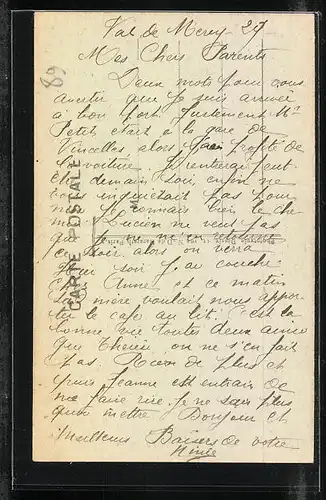 Val de Mercy 27
Mes Chers Parents
Deux mots pour vous
avertir que je suis arrivée
à bon port. Justement Mr
Petit etait a la gare de
Vincelles alors j'ai profité de
sa voiture. Je rentrerai peut
etre demain soir, enfin ne
vous inquiétait pas pour
moi je connais bien le che
min. Lucien ne veut pas
que
ce soir alors on verra
Hier soir j'ai couché
Chez Anne et ce matin
sa mère voulait nous appor
ter le café au lit. C'est la
bonne vie toutes deux avec
que Thérèse on ne s'en fait
pas. Rien de plus et
puis Jeanne est entrain de
me faire rire je ne sais plus
quoi mettre Bonjour et
Meilleurs Baisers de votre
Ninie
CARTE POSTALE
89